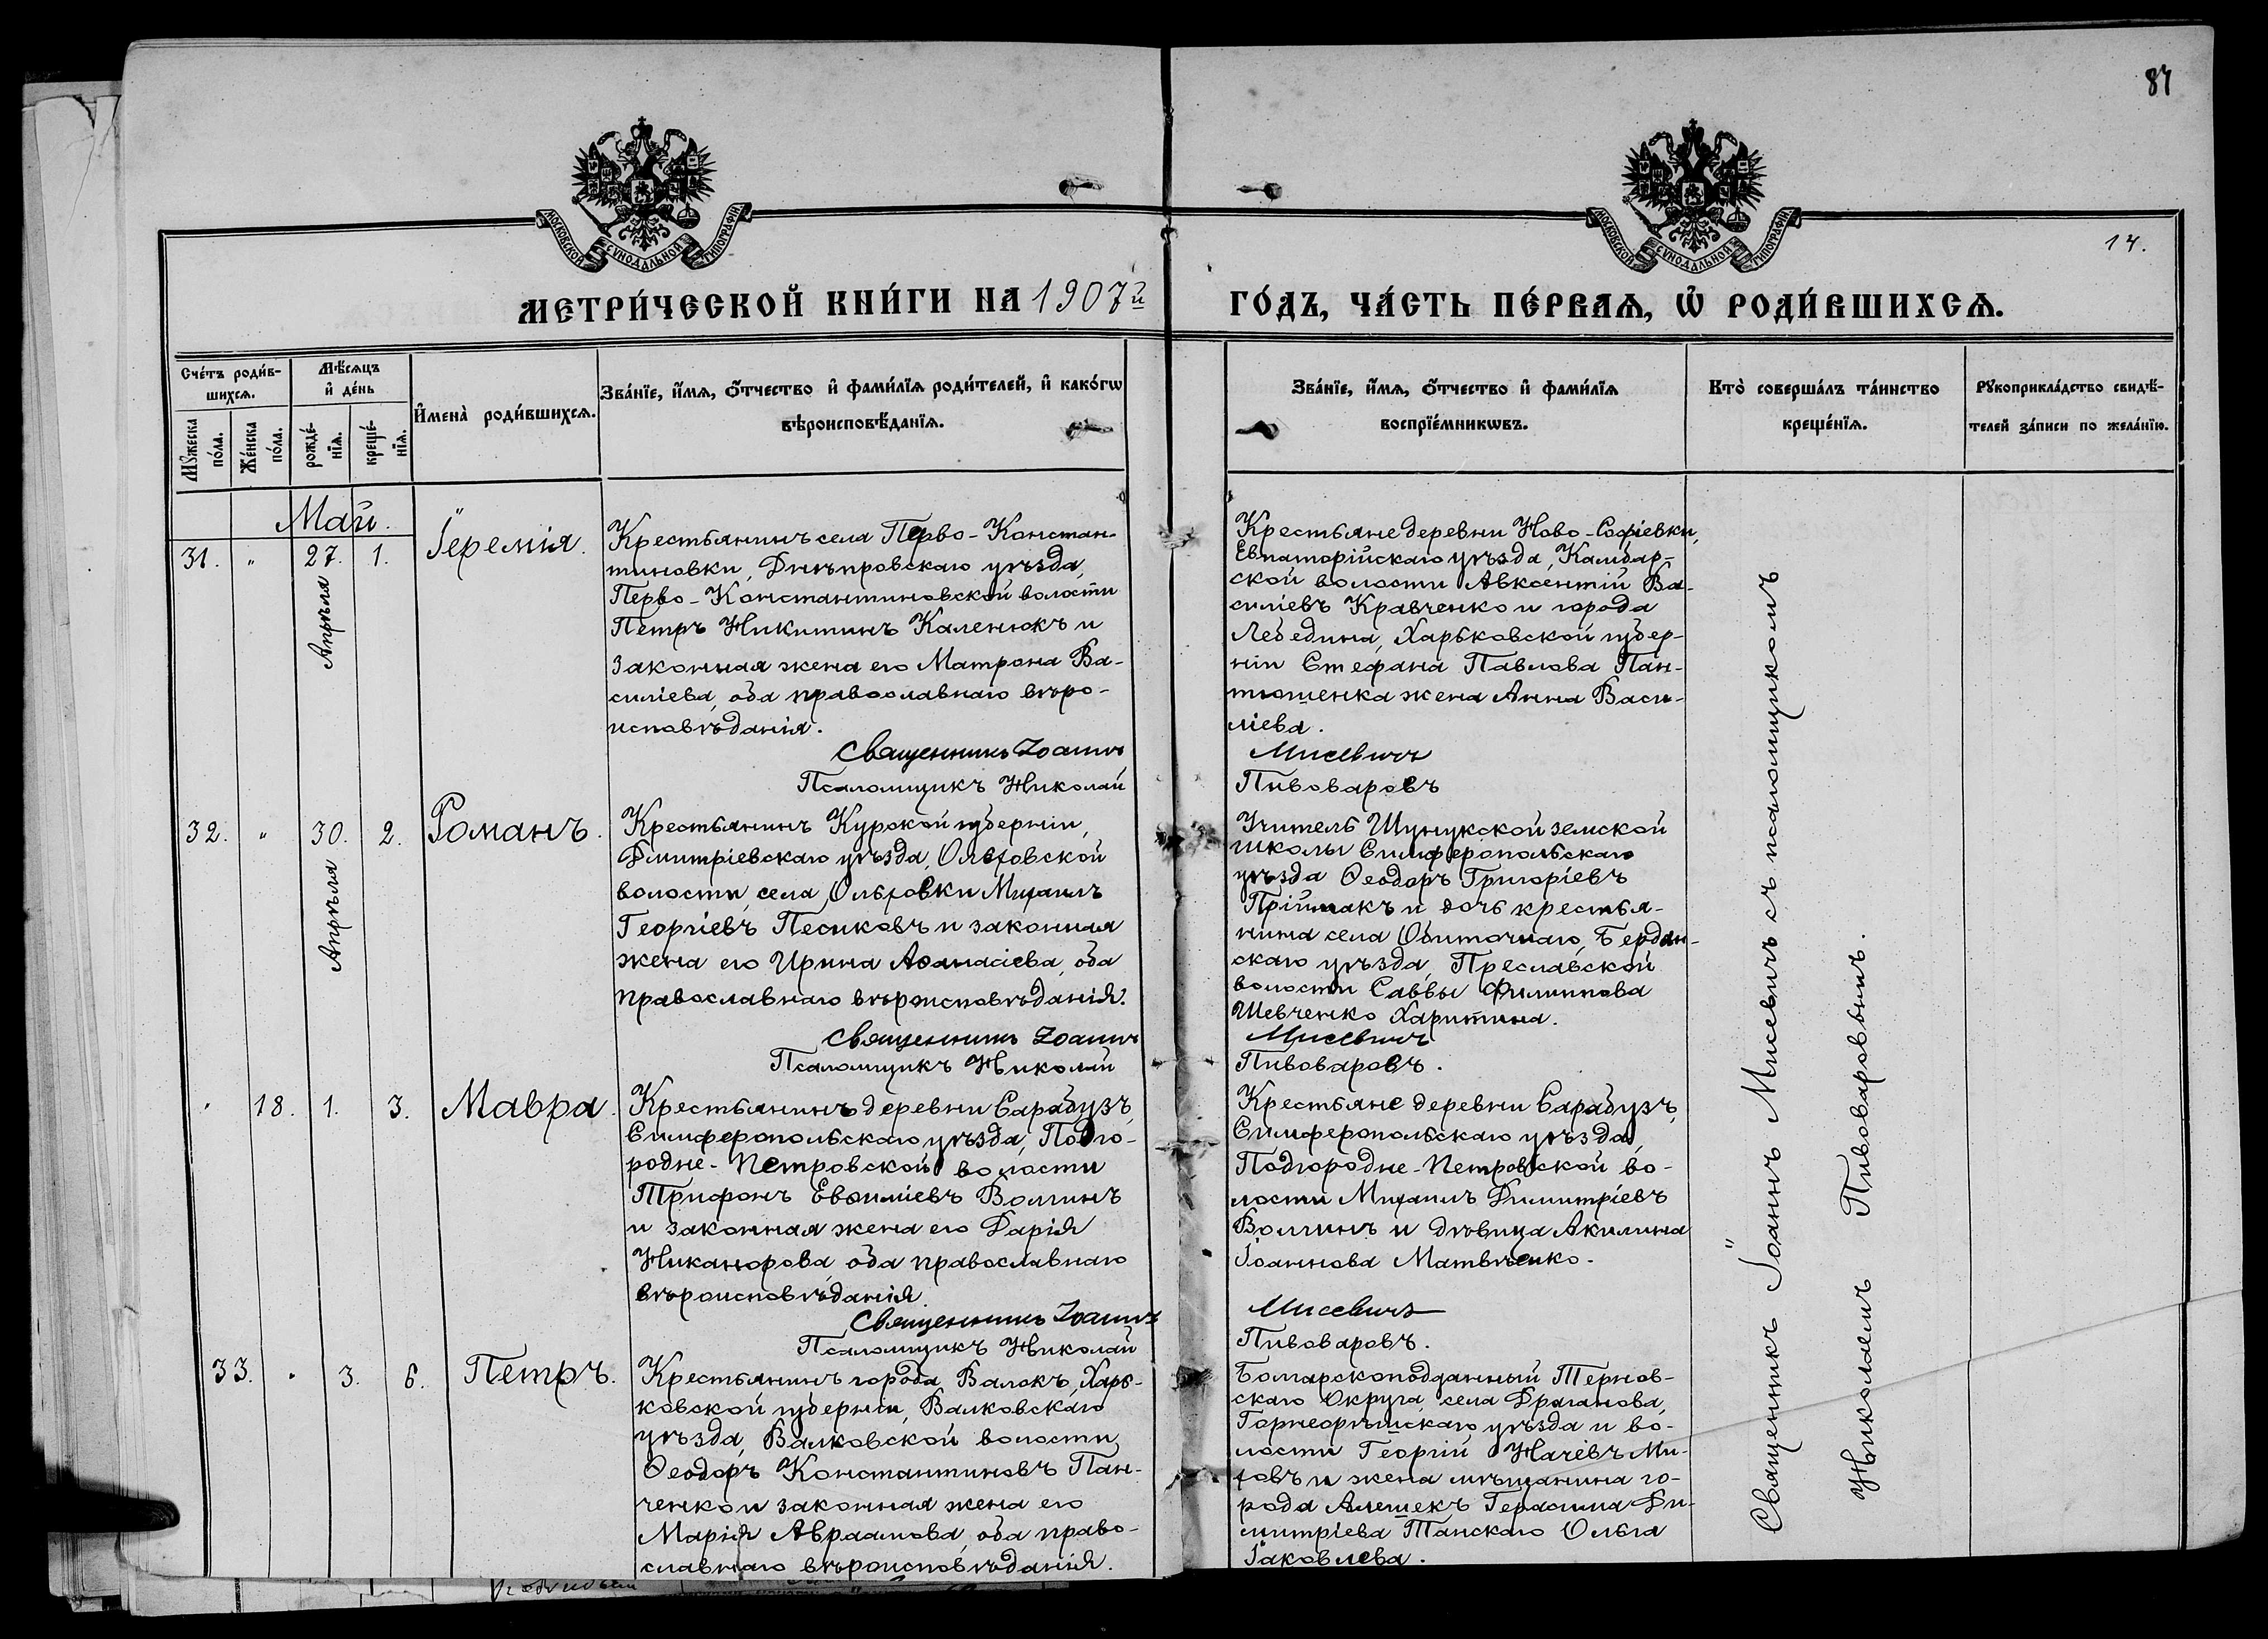 87
МОСКОВСКОЙ СѴНОДАЛЬНОЙ ТИПОГРАФІИ
МОСКОВСКОЙ СѴНОДАЛЬНОЙ ТИПОГРАФІИ
14.
МЕТРИ́ЧЕСКОЙ КНИ́ГИ НА 1907й ГО́ДЪ, ЧА́СТЬ ПЕ́РВАѦ, Ѡ҆ РОДИ́ВШИХСѦ.
Сче́тъ роди́в-
шихсѧ.
Мꙋ́жеска
по́ла.
Же́нска
по́ла.
Мѣ́сѧцъ
и҆ де́нь
рожде́-
нїѧ.
креще́-
нїѧ.
И҆мена̀ роди́вшихсѧ.
Зва́нїе, и҆́мѧ, ѻ҆́тчество и҆ фами́лїѧ роди́телей, и҆ како́гѡ
вѣроисповѣ́данїѧ.
Зва́нїе, и҆́мѧ, ѻ҆́тчество и҆ фами́лїѧ
воспрїе́мникѡвъ.
Кто̀ соверша́лъ та́инство
креще́нїѧ.
Рꙋкоприкла́дство свидѣ́-
телей за́писи по жела́нїю.
Май.
31. " 27. 1. Іеремія.
Апрѣля
Крестьянинъ села Перво-Констан-
тиновки, Днѣпровскаго уѣзда,
Перво-Константиновской волости
Петръ Никитинъ Каленюкъ и
законная жена его Матрона Ва-
силіева, оба православнаго вѣро-
исповѣданія.
Священникъ Іоаннъ
Псаломщикъ Николай
Крестьяне деревни Ново-Софіевки,
Евпаторійскаго уѣзда, Камбар-
ской волости Авксентій Ва-
силіевъ Кравченко и города
Лебедина, Харьковской губер-
ніи Стефана Павлова Пан-
тюшенка жена Анна Васи-
ліева.
Мисевичъ
Пивоваровъ
32. " 30. 2. Романъ.
Апрѣля
Крестьянинъ Курской губерніи,
Дмитріевскаго уѣзда, Ольховской
волости, села Ольховки Михаилъ
Георгіевъ Песиковъ и законная
жена его Ирина Аѳанасіева, оба
православнаго вѣроисповѣданія.
Священникъ Іоаннъ
Псаломщикъ Николай
Учитель Шунукской земской
школы Симферопольскаго
уѣзда Ѳеодоръ Григоріевъ
Пріймакъ и дочь крестья-
нина села Обиточнаго, Бердян-
скаго уѣзда, Преславской
волости Саввы Филиппова
Шевченко Харитина.
Мисевичъ
Пивоваровъ.
" 18. 1. 3. Мавра.
Крестьянинъ деревни Сарабузъ,
Симферопольскаго уѣзда, Подго-
родне-Петровской волости
Трифонъ Евѳиміевъ Волгинъ
и законная жена его Дарія
Никанорова, оба православнаго
вѣроисповѣданія.
Священникъ Іоаннъ
Псаломщикъ Николай
Крестьяне деревни Сарабузъ,
Симферопольскаго уѣзда,
Подгородне-Петровской во-
лости Михаилъ Димитріевъ
Волгинъ и дѣвица Акилина
Іоаннова Матвѣенко.
Мисевичъ
Пивоваровъ.
33. " 3. 6. Петръ.
Крестьянинъ города Валокъ, Харь-
ковской губерніи, Валковскаго
уѣзда, Валковской волости
Ѳеодоръ Константиновъ Пан-
ченко и законная жена его
Марія Авраамова, оба право-
славнаго вѣроисповѣданія.
Болгарскоподданный Тернов-
скаго Округа, села Драганова,
Горнеорѣшскаго уѣзда и во-
лости Георгій Начевъ Ми-
ховъ и жена мѣщанина го-
рода Алешекъ Герасима Ди-
митріева Танскаго Ольга
Іаковлева.
Священникъ Іоаннъ Мисевичъ съ псаломщикомъ
Николаемъ Пивоваровымъ.